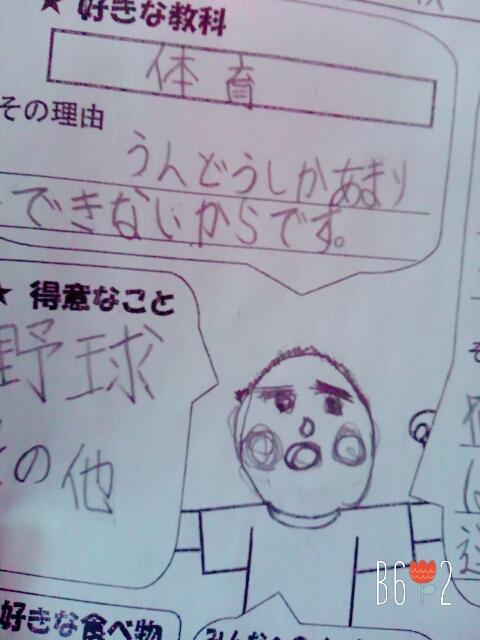 ★ 好きな教科
体育
その理由
うんどうしかあまり
できないからです。
★ 得意なこと
野球
の他
好きな食べ物
B612